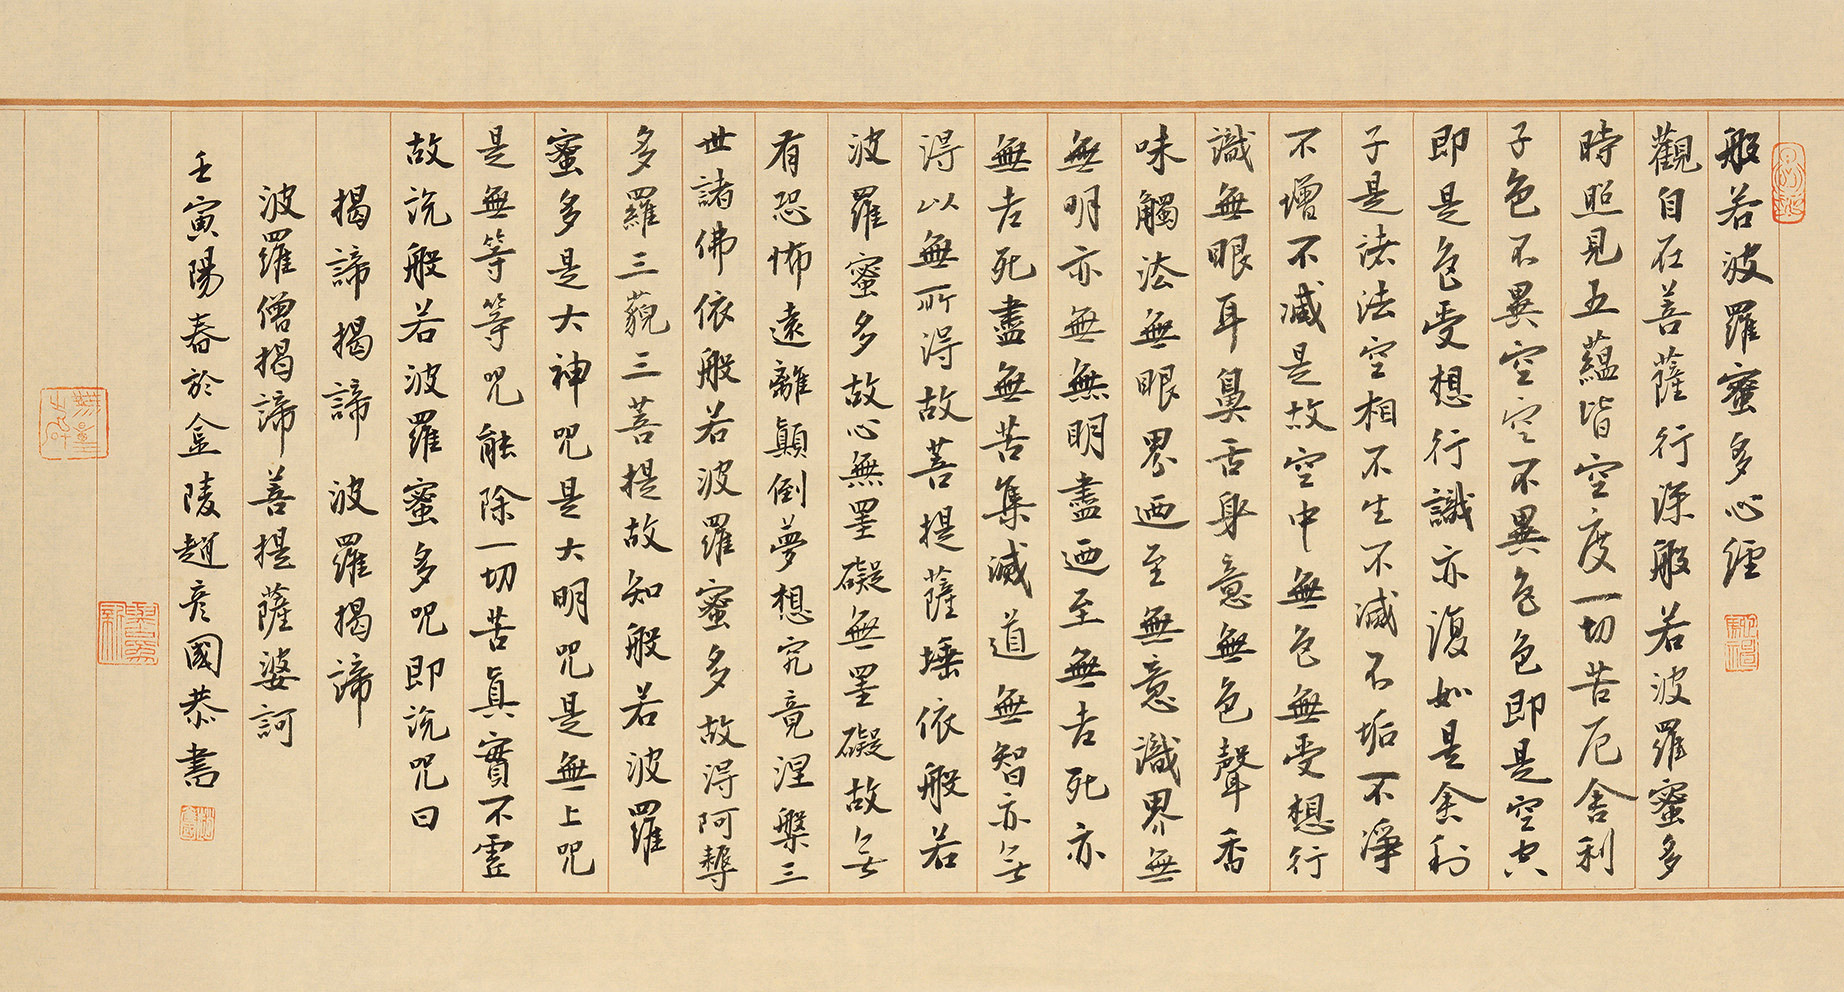 般若波羅蜜多心經
觀自在菩薩行深般若波羅蜜多
時照見五蘊皆空度一切苦厄舍利
子色不異空空不異色色即是空空
即是色受想行識亦復如是舍利
子是諸法空相不生不滅不垢不淨
不增不減是故空中無色無受想行
識無眼耳鼻舌身意無色聲香
味觸法無眼界迺至無意識界無
無明亦無無明盡迺至無老死亦
無老死盡無苦集滅道無智亦無
得以無所得故菩提薩埵依般若
波羅蜜多故心無罣礙無罣礙故無
有恐怖遠離顛倒夢想究竟涅槃三
世諸佛依般若波羅蜜多故得阿耨
多羅三藐三菩提故知般若波羅
蜜多是大神咒是大明咒是無上咒
是無等等咒能除一切苦真實不虛
故說般若波羅蜜多咒即說咒曰
揭諦揭諦 波羅揭諦
波羅僧揭諦菩提薩婆訶
壬寅陽春於金陵趙彥國恭書